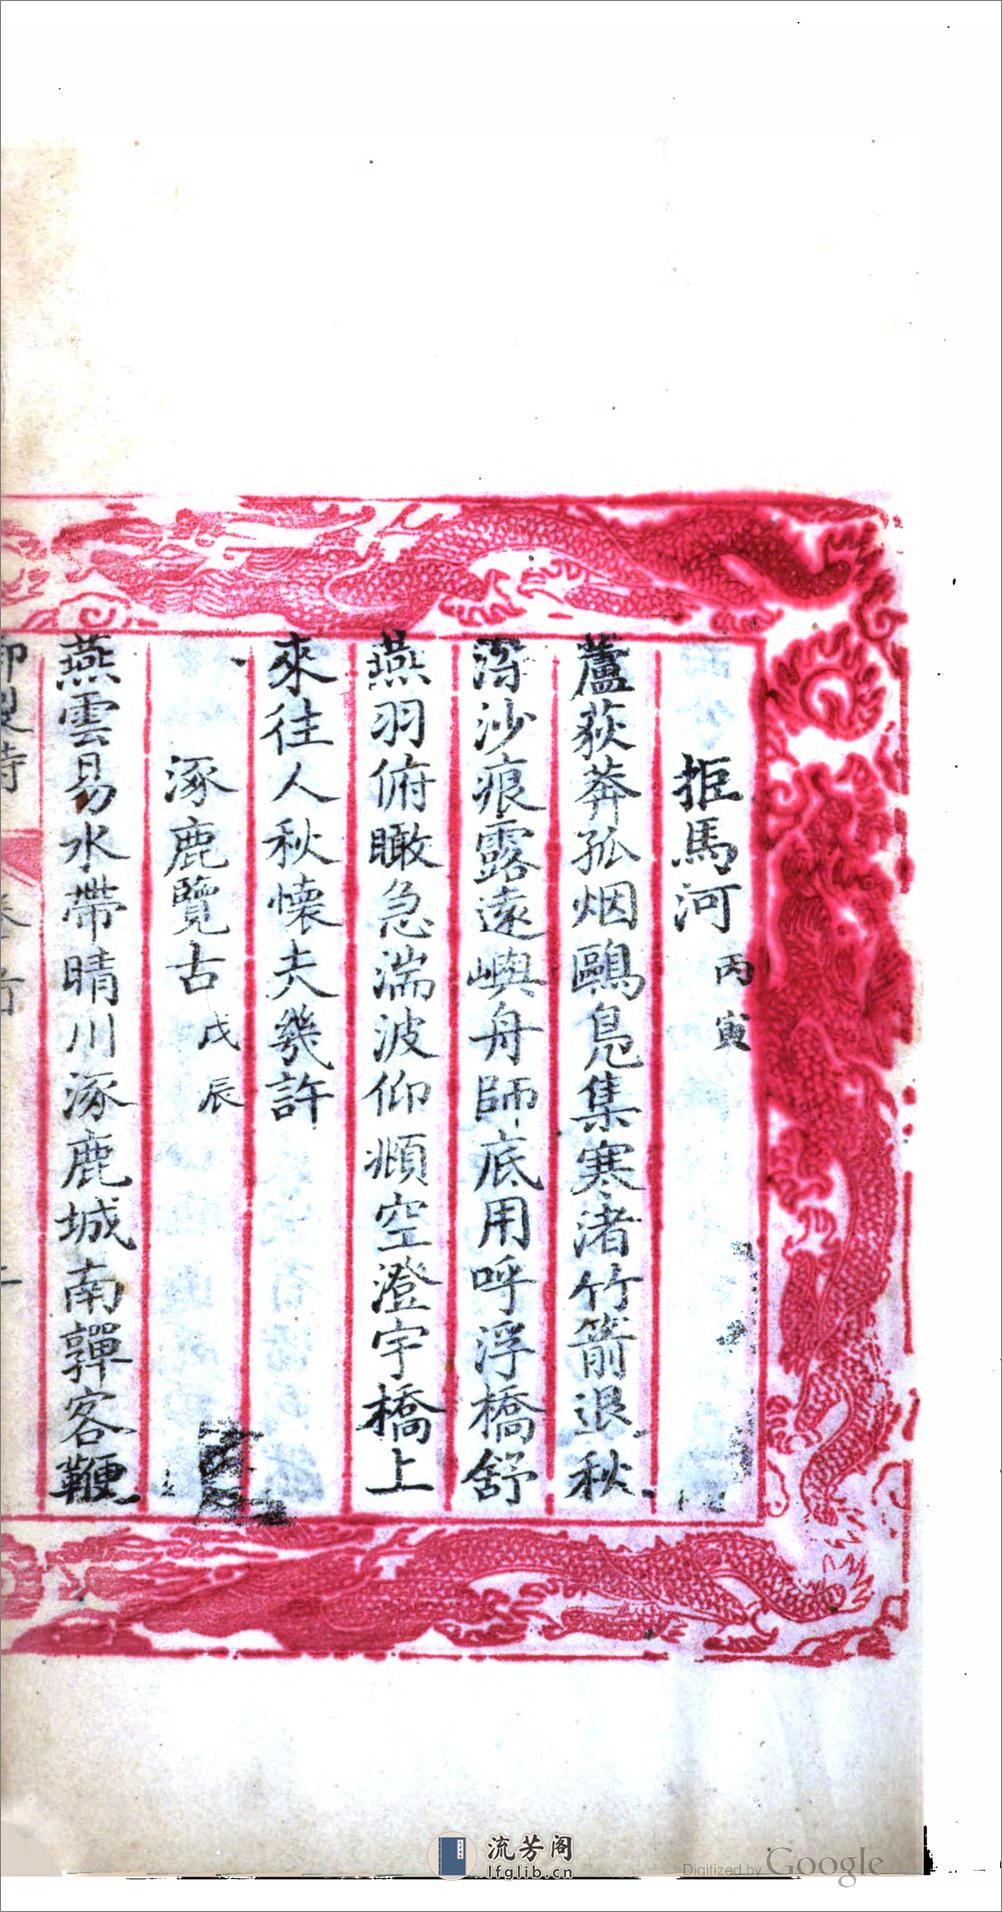 拒馬河 丙寅
蘆荻莽孤烟鷗鳧集寒渚竹箭退秋
深沙痕露遠嶼舟師底用呼浮橋舒
燕羽俯瞰急湍波仰頫空澄宇橋上
來往人秋懷夫幾許
涿鹿覽古 戊辰
燕雲易水帶晴川涿鹿城南嚲客鞭
流芳阁
lfglib.cn
Digitized by Google